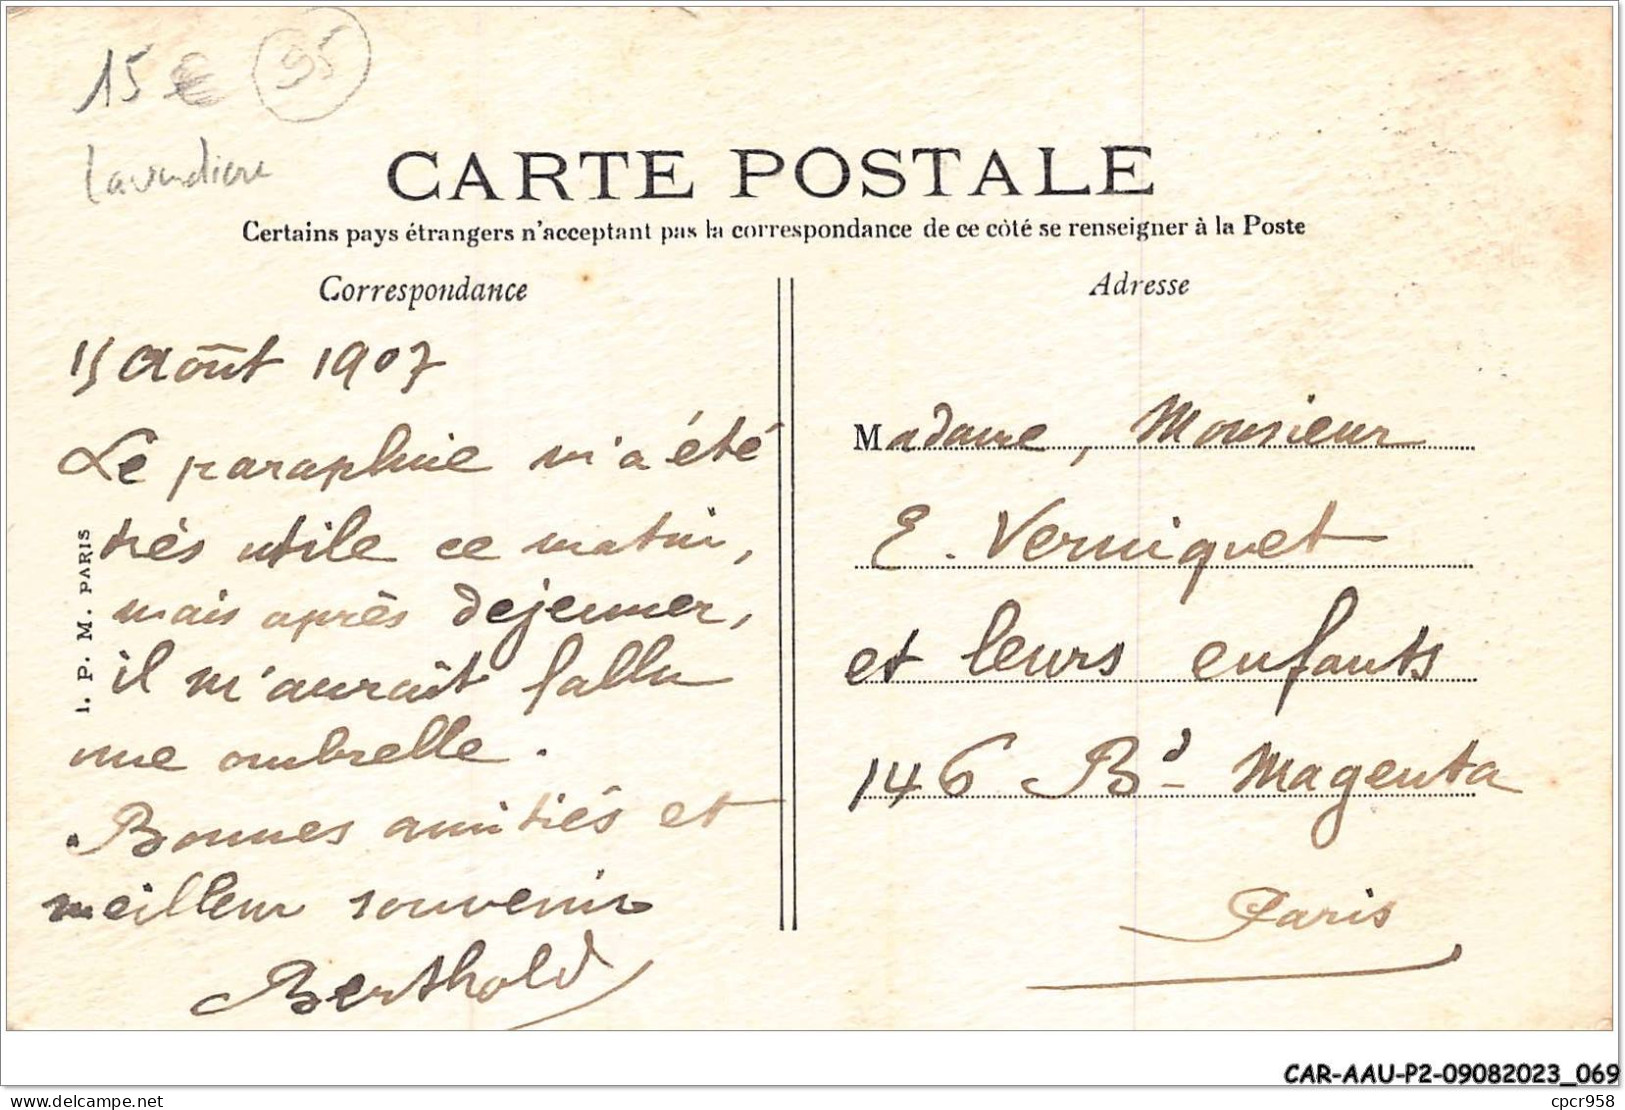 15 € 95
Lavandière
CARTE POSTALE
Certains pays étrangers n'acceptent pas la correspondance de ce côté se renseigner à la Poste
Correspondance
15 Août 1907
Le parapluie m'a été
très utile ce matin,
mais après dejeuner,
il m'aurait fallu
une ombrelle.
Bonnes amitiés et
meilleur souvenir
Berthold
I. P. M. PARIS
Adresse
Madame, Monsieur
E. Verniquet
et leurs enfants
146 Bd Magenta
Paris
CAR-AAU-P2-09082023_069
delcampe.net
cpcr958